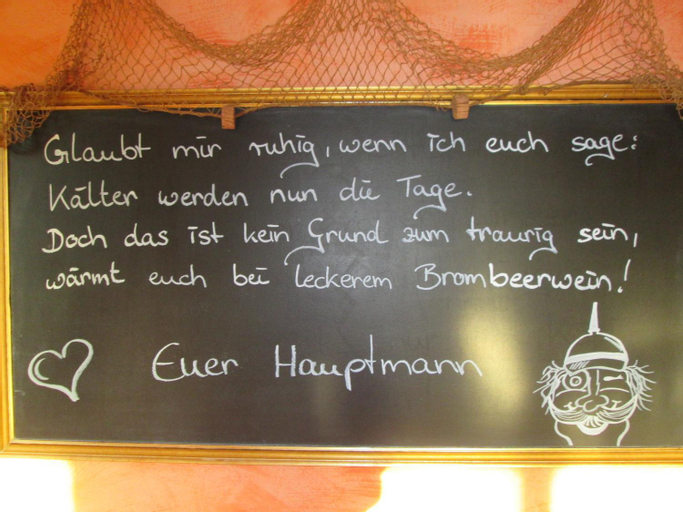 Glaubt mir ruhig, wenn ich euch sage:
Kälter werden nun die Tage.
Doch das ist kein Grund zum traurig sein,
wärmt euch bei leckerem Brombeerwein!
Euer Hauptmann